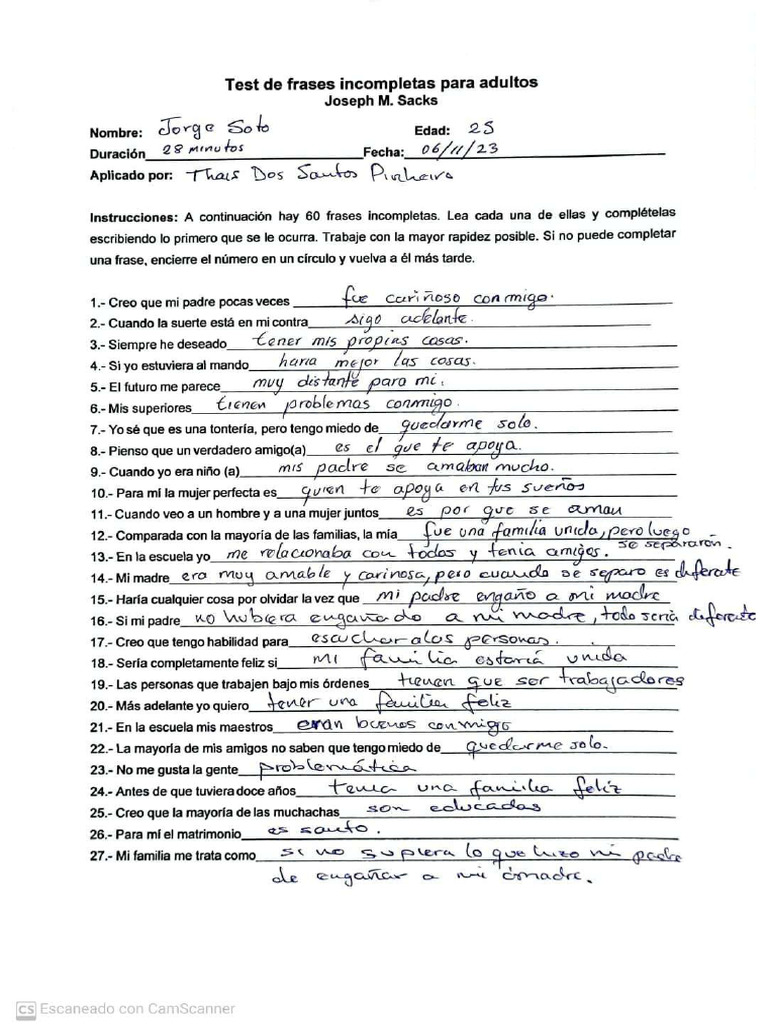 Test de frases incompletas para adultos
Joseph M. Sacks
Nombre: Jorge Soto Edad: 25
Duración 28 minutos Fecha: 06/11/23
Aplicado por: Thais Dos Santos Pinheiro
Instrucciones: A continuación hay 60 frases incompletas. Lea cada una de ellas y complételas
escribiendo lo primero que se le ocurra. Trabaje con la mayor rapidez posible. Si no puede completar
una frase, encierre el número en un círculo y vuelva a él más tarde.
1.- Creo que mi padre pocas veces fue cariñoso conmigo.
2.- Cuando la suerte está en mi contra sigo adelante.
3.- Siempre he deseado tener mis propias cosas.
4.- Si yo estuviera al mando haria mejor las cosas.
5.- El futuro me parece muy distante para mi.
6.- Mis superiores tienen problemas conmigo.
7.- Yo sé que es una tontería, pero tengo miedo de quedarme solo.
8.- Pienso que un verdadero amigo(a) es el que te apoya.
9.- Cuando yo era niño (a) mis padre se amaban mucho.
10.- Para mí la mujer perfecta es quien te apoya en tus sueños
11.- Cuando veo a un hombre y a una mujer juntos es por que se aman
12.- Comparada con la mayoría de las familias, la mía fue una familia unida, pero luego
se separaron.
13.- En la escuela yo me relacionaba con todos y tenia amigos.
14.- Mi madre era muy amable y carinosa, pero cuando se separo es diferate
15.- Haría cualquier cosa por olvidar la vez que mi padre engaño a mi madre
16.- Si mi padre no hubiera engañado a mi madre, todo seria deferate
17.- Creo que tengo habilidad para escuchar a las personas.
18.- Sería completamente feliz si mi familia estaría unida
19.- Las personas que trabajen bajo mis órdenes tienen que ser trabajadores
20.- Más adelante yo quiero tener una familia feliz
21.- En la escuela mis maestros eran buenos conmigo
22.- La mayoría de mis amigos no saben que tengo miedo de quedarme solo.
23.- No me gusta la gente problemática
24.- Antes de que tuviera doce años tenia una familia feliz
25.- Creo que la mayoría de las muchachas son educadas
26.- Para mí el matrimonio es santo.
27.- Mi familia me trata como si no supiera lo que hizo mi padre
de engañar a mi madre.
CS Escaneado con CamScanner